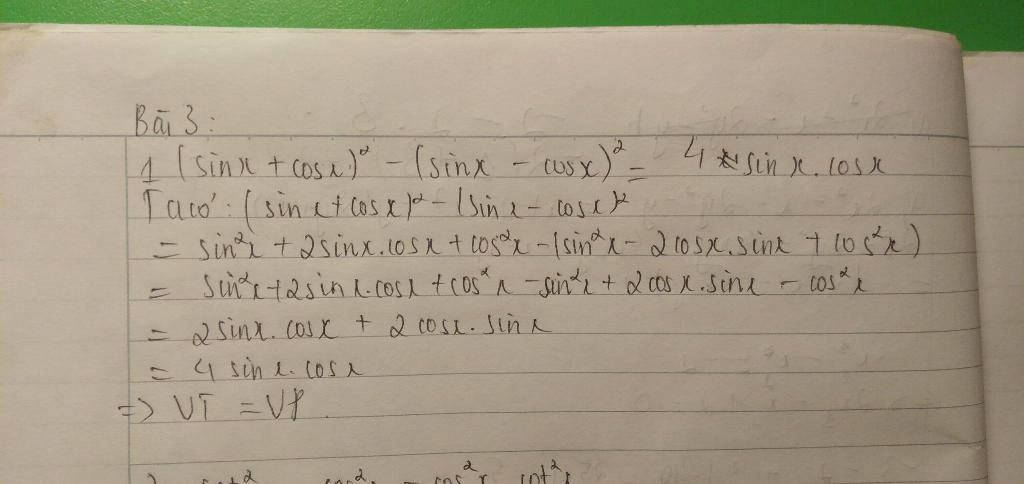 Bài 3:
1 (sinx + cosx)² - (sinx - cosx)² = 4 sin x. cosx
Ta có: (sinx + cosx)² - (sinx - cosx)²
= sin²x + 2sinx.cosx + cos²x - (sin²x - 2cosx.sinx + cos²x)
= sin²x + 2sinx.cosx + cos²x - sin²x + 2cosx.sinx - cos²x
= 2sinx.cosx + 2cosx.sinx
= 4 sinx.cosx
=> VT = VP.